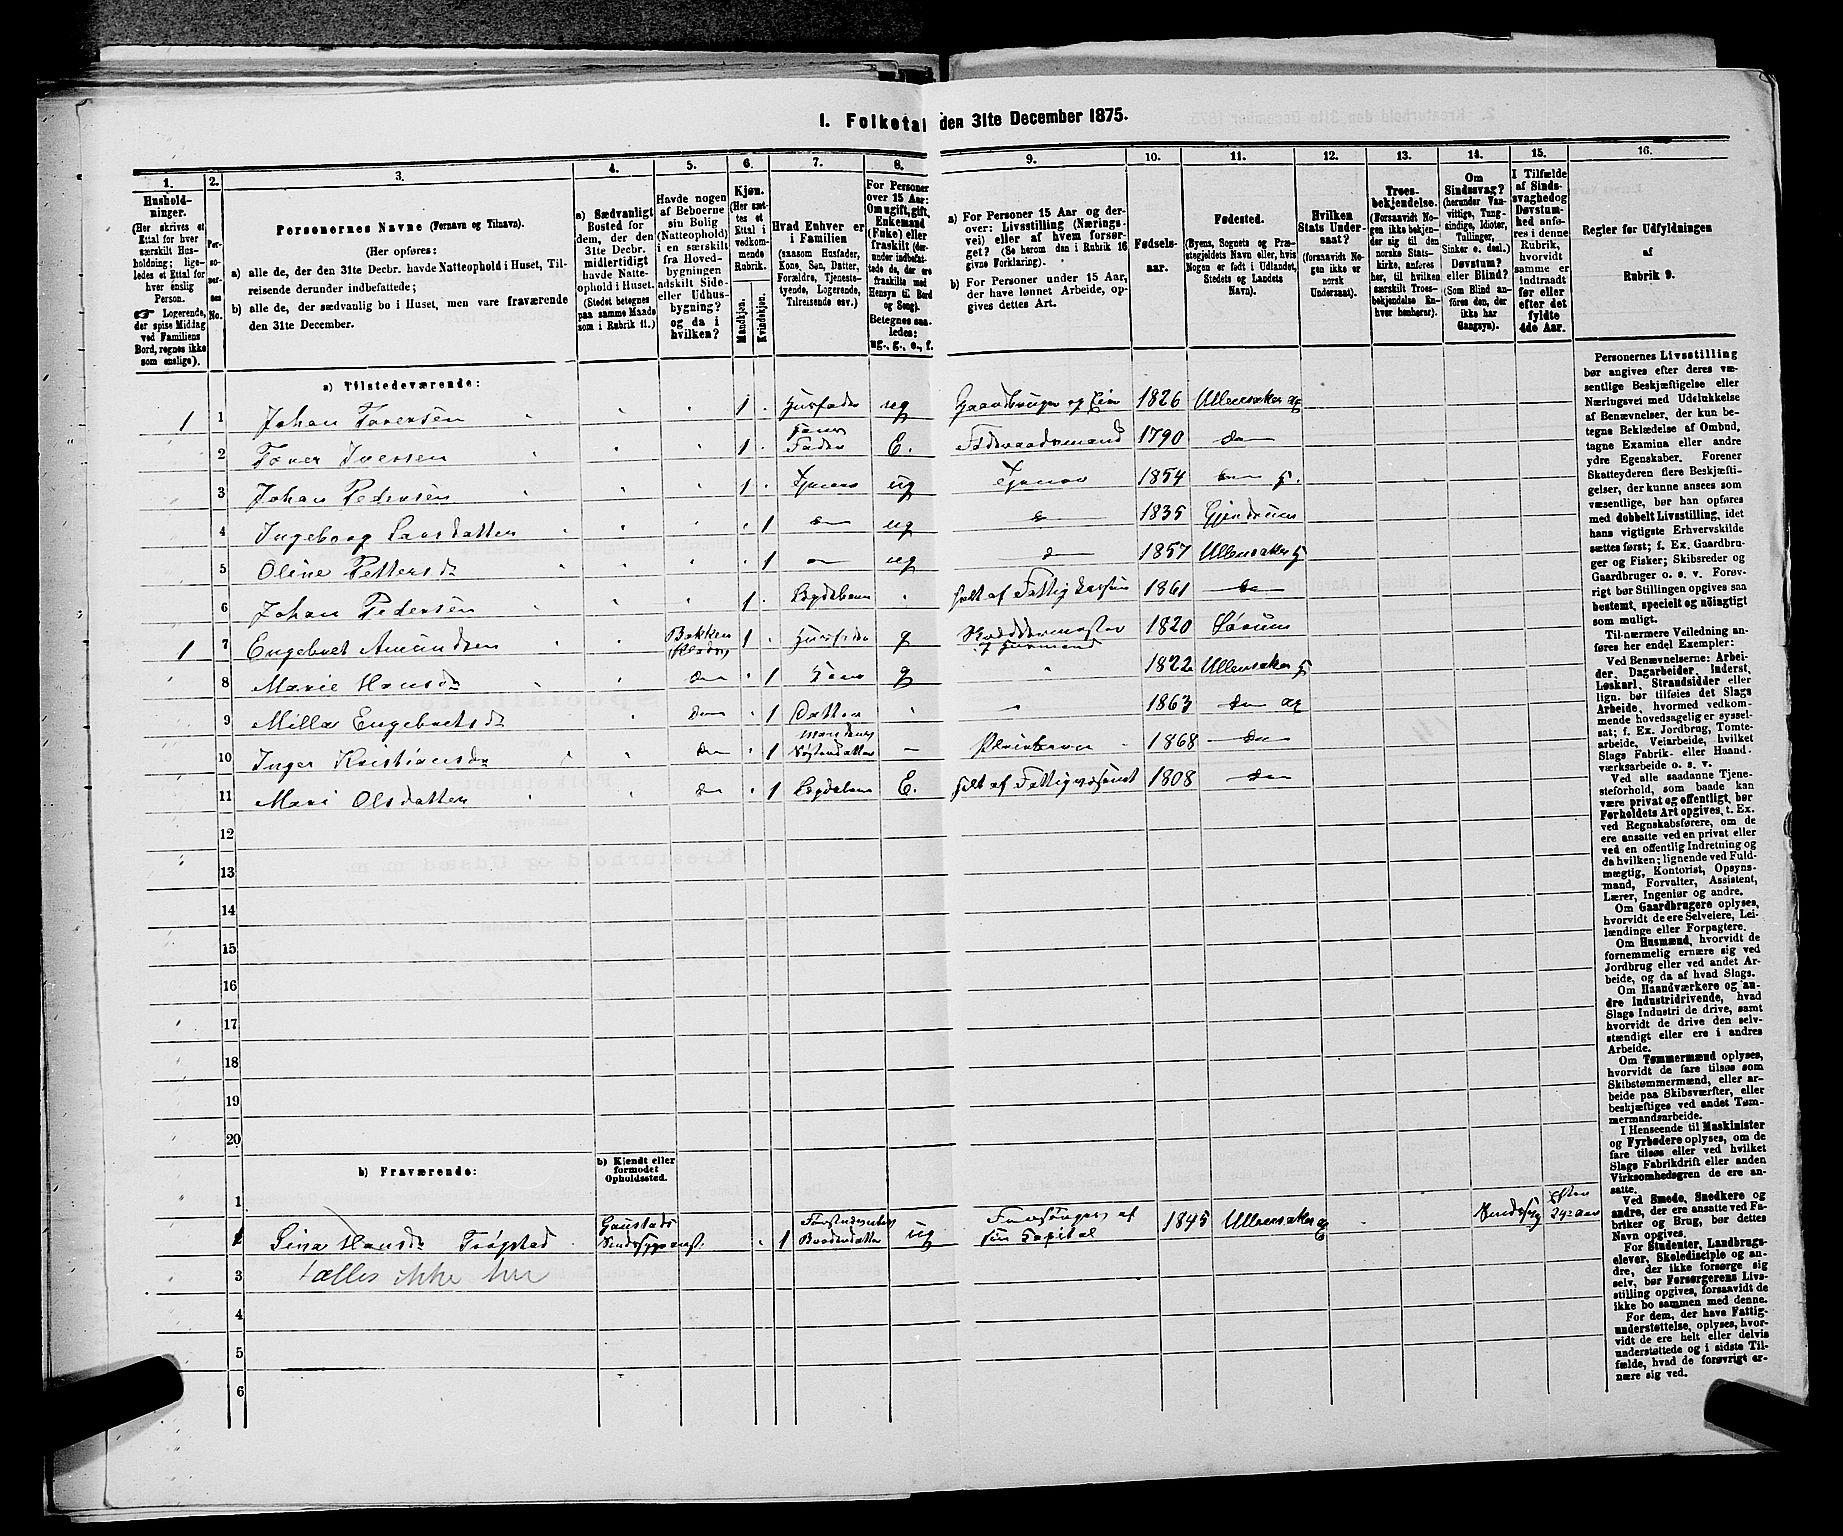 1. Folketal den 31te December 1875.
1. 2. 3. 4. 5. 6. 7. 8. 9. 10. 11. 12. 13. 14. 15. 16.
Hushold-
ninger.
(Her skrives et
Ettal for hver
særskilt Hus-
holdning; lige-
ledes et Ettal for
hver enslig
Person.
☛ Logerende,
der spise Middag
ved Familiens
Bord, regnes ikke
som enslige).
Per-
so-
ner-
nes
No.
Personernes Navne (Fornavn og Tilnavn).
(Her opføres:
a) alle de, der den 31te Decbr. havde Natteophold i Huset, Til-
reisende derunder indbefattede;
b) alle de, der sædvanlig bo i Huset, men vare fraværende
den 31te December.
a) Sædvanligt
Bosted for
dem, der den
31te Decbr.
midlertidigt
havde Natte-
ophold i Huset.
(Stedet betegnes
paa samme Maade
som i Rubrik 11.)
Havde nogen
af Beboerne
sin Bolig
(Natteophold)
i en særskilt
fra Hoved-
bygningen
adskilt Side-
eller Udhus-
bygning?
og da i
hvilken?
Kjøn.
(Her sæt-
tes et
Ettal i
vedkom-
mende
Rubrik.
Mandkjøn.
Kvindekjøn.
Hvad Enhver er
i Familien
(saasom Husfader,
Kone, Søn, Datter,
Forældre, Tjeneste-
tyende, Logerende,
Tilreisende osv.)
For Personer
over 15 Aar:
Om ugift, gift,
Enkemand
(Enke) eller
fraskilt (der-
under indbefat-
tede de, der ere
fraskilte med
Hensyn til Bord
og Seng).
Betegnes saa-
ledes:
ug., g., e., f.
a) For Personer 15 Aar og der-
over: Livsstilling (Nærings-
vei) eller af hvem forsør-
get? (Se herom den i Rubrik 16
givne Forklaring).
b) For Personer under 15 Aar,
der have lønnet Arbeide, op-
gives dettes Art.
Fødsels-
aar.
Fødested.
(Byens, Sognets og Præ-
stegjeldets Navn eller, hvis
Nogen er født i Udlandet,
Stedets og Landets
Navn).
Hvilken
Stats Under-
saat?
(forsaavidt No-
gen ikke er
norsk
Undersaat).
Troes-
bekjendelse.
(Forsaavidt No-
gen ikke bekjen-
der sig til den
norske Stats-
kirke, anføres
her, til hvilken
særskilt Troes-
bekjendelse En-
hver henhører).
Om
Sindssvag?
(herunder Van-
vittige, Tung-
sindige, Idioter,
Tullinger,
Sinker o. desl.)
Døvstum?
eller Blind?
(Som Blind an-
føres den, der
ikke har
Gangsyn).
I Tilfælde
af Sinds-
svaghed og
Døvstum-
hed anfø-
res i denne
Rubrik,
hvorvidt
samme er
indtraadt
før eller
efter det
fyldte
4de Aar.
Regler for Udfyldningen
af
Rubrik 9.
a) Tilstedeværende:
1 1 Johan Toversen 1 Husfader ug Gaardbruger og Eier 1826 Ullensaker
2 Tover Iversen 1 Fader E. Føderaadsmand 1790 do
3 Johan Pedersen 1 ug 1854 do
4 Ingeborg Larsdatter 1 do ug do 1835 Gjendrum
5 Oline Pettersd 1 ug do 1857 Ullensaker
6 Johan Pedersen 1 Lægdslem helt af 1861 do
1 7 Engebret Amundsen Bakken 1 Husfader g 1820 Sørum
og Husmand
8 Marie Hansd do 1 Kone g 1822 Ullensaker
9 Milla Engebretsd do 1 Datter 1863 do
10 Inger Kristiansd do 1 Søsterdatter Pleiebarn 1868 do
11 Mari Olsdatter do 1 Lægdslem E. helt af Fattigvæsenet 1808 do
12
13
14
15
16
17
18
19
20
b) Fraværende:
b) Kjendt eller
formodet
Opholdssted.
1
Sina Hansd Trøgstad Gaustads Sindssygeanst. 1 Broderdatter ug Forsørges af sin Kapital 1845 Ullensaker Sindssyg Efter 24de Aar
Tælles ikke her
3
4
5
6
Personernes Livsstilling
bør angives efter deres væ-
sentlige Beskjæftigelse eller
Næringsvei med Udelukkelse
af Benævnelser, der kun be-
tegne Beklædelse af Ombud,
tagne Examina eller andre
ydre Egenskaber. Forener
Skatteyderen flere Beskjæfti-
gelser, der kunne ansees som
væsentlige, bør han opføres
med dobbelt Livsstilling, idet
hans vigtigste Erhvervskilde
sættes først; f. Ex. Gaardbru-
ger og Fisker; Skibsreder og
Gaardbruger o. s. v. Forøv-
rigt bør Stillingen opgives saa
bestemt, specielt og nøiagtigt
som muligt.
Til nærmere Veiledning an-
føres her endel Exempler:
Ved Benævnelserne: Arbei-
der, Dagarbeider, Inderst,
Løskarl, Strandsidder eller
lign. bør tilføies det Slags
Arbeide, hvormed vedkom-
mende hovedsagelig er syssel-
sat; f. Ex. Jordbrug, Tomte-
arbeide, Veiarbeide, hvilket
Slags Fabrik- eller Haand-
værksarbeide o. s. v.
Ved alle saadanne Tjene-
steforhold, som baade kan
være privat og offentligt, bør
Forholdets Art opgives, t. Ex.
ved Regnskabsførere, om de
ere ansatte ved en privat eller
ved en offentlig Indretning og
da hvilken; lignende ved Fuld-
mægtig, Kontorist, Opsyns-
mand, Forvalter, Assistent,
Lærer, Ingeniør og andre.
Om Gaardbrugere oplyses,
hvorvidt de ere Selveiere, Lei-
lændinge eller Forpagtere.
Om Husmænd, hvorvidt de
fornemmelig ernære sig ved
Jordbrug eller ved andet Ar-
beide, og da af hvad Slags.
Om Haandværkere og an-
dre Industridrivende, hvad
Slags Industri de drive, samt
hvorvidt de drive den selv-
stændigt eller ere i andres
Arbeide.
Om Tømmermænd oplyses,
hvorvidt de fare tilsøs som
Skibstømmermænd, eller ar-
beide paa Skibsværfter, eller
beskjæftiges ved andet Tøm-
mermandsarbeide.
I Henseende til Maskinister
og Fyrbødere oplyses, om de
fare tilsøs eller ved hvilket
Slags Fabrikdrift eller anden
Virksomhedsgren de ere an-
satte.
Ved Smede, Snedkere og
andre, der ere ansatte ved Fa-
briker og Brug, bør dettes
Navn opgives.
For Studenter, Landbrugs-
elever, Skoledisciple og an-
dre, der ikke forsørge sig
selv, bør Forsørgerens Livs-
stilling opgives, forsaavidt de
ikke bo sammen med denne.
For dem, der have Fattig-
understøttelse, oplyses, hvor-
vidt de ere helt eller delvis
understøttede og i sidste Til-
fælde, hvad de forøvrigt er-
nære sig ved.